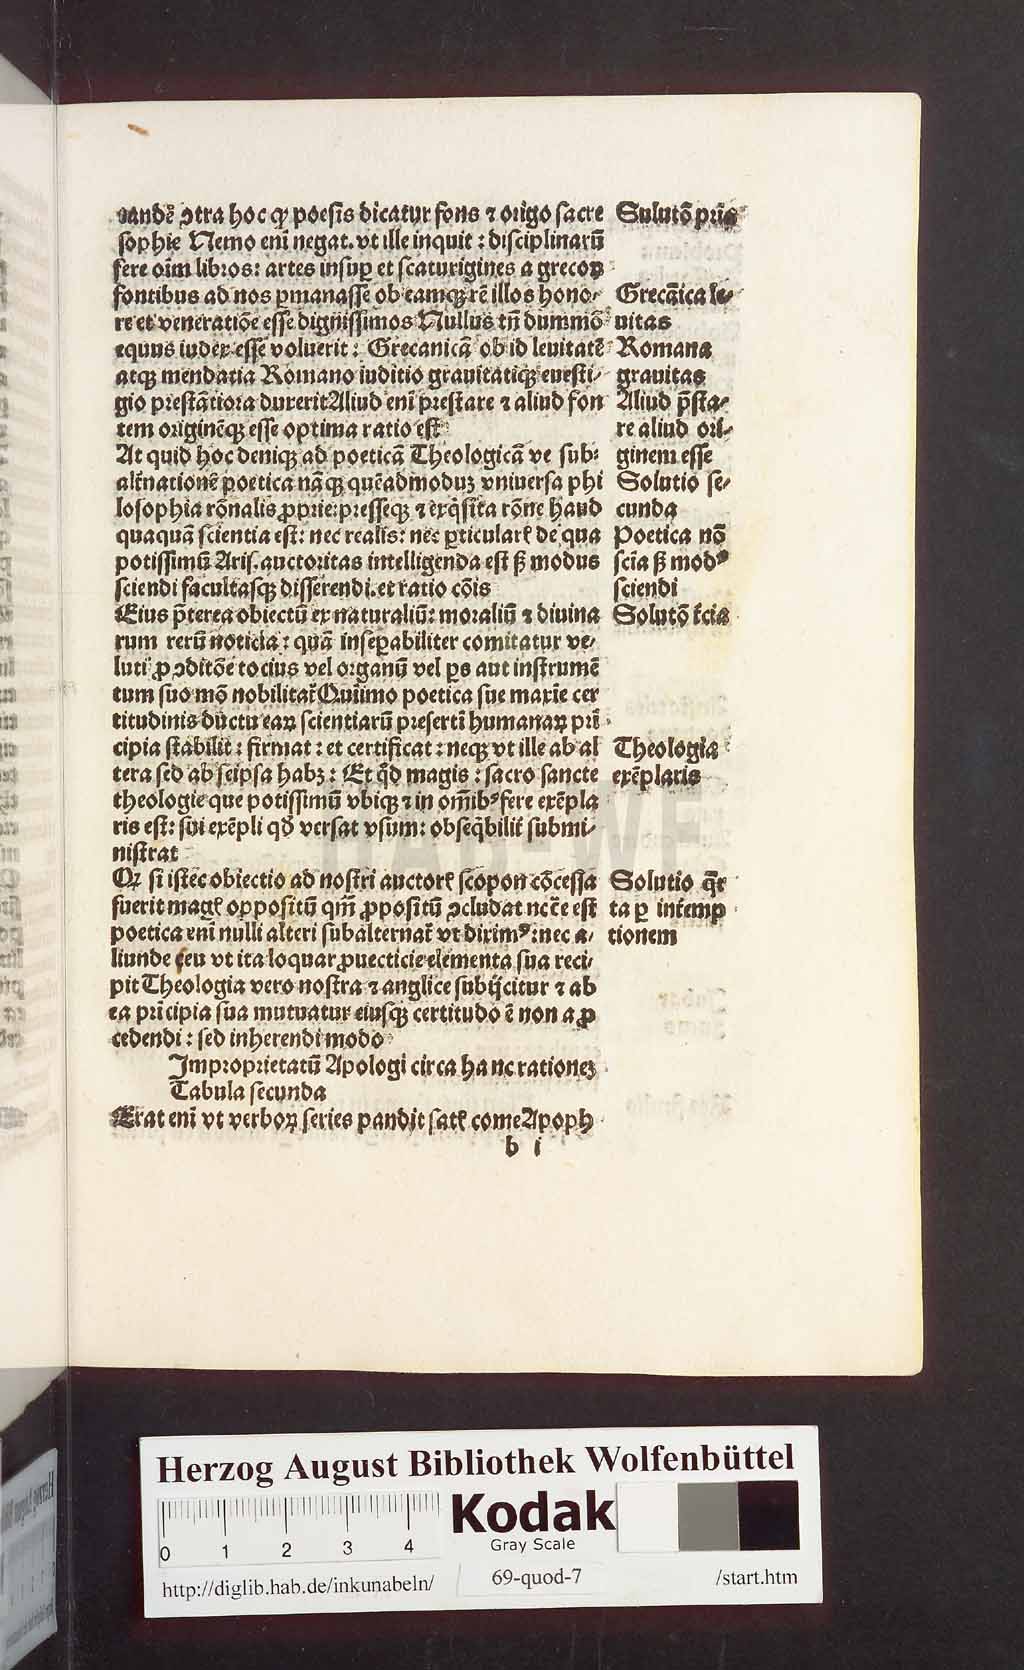 andē ↄtra hoc ꝙ poesis dicatur fons ⁊ origo sacre
sophie Nemo eni negat. vt ille inquit : disciplinarū
fere oīm libros: artes insuꝑ et scaturigines a grecoꝝ
fontibus ad nos ꝑmanasse ob eamqꝫ rē illos hono-
re et veneratiōe esse dignissimos Nullus tn̄ dummō
equus iudex esse voluerit : Grecanicā ob id leuitatē
atqꝫ mendatia Romano iuditio grauitatiqꝫ euesti-
gio prestātiora duxerit Aliud eni prestare ⁊ aliud fon
tem originēqꝫ esse optima ratio est
At quid hoc deniqꝫ ad poeticā Theologicā ve sub:
alr̄nationē poetica nāqꝫ quēadmoduꝫ vniuersa phi
losophia rōnalis ꝓprie: presseqꝫ ⁊ exq̄sita rōne haud
quaquā scientia est: nec realis: nec ꝑticularꝭ de qua
potissimū Aris. auctoritas intelligenda est sꝫ modus
sciendi facultasqꝫ disserendi. et ratio cōis
Eius p̄terea obiectū ex naturaliū: moraliū ⁊ diuina
rum rerū noticia : quā inseꝑabiliter comitatur ve-
luti ꝓ ↄditōe tocius vel organū vel ꝑs aut instrumē
tum suo mō nobilitat̄ Quīimo poetica sue maxīe cer
titudinis ductu eaꝝ scientiarū presertī humanaꝝ prī
cipia stabilit : firmat : et certificat : neqꝫ vt ille ab al
tera sed ab seipsa habꝫ : Et q̄d magis : sacro sancte
theologie que potissimū vbiqꝫ ⁊ in om̄ibꝰ fere exēpla
ris est: sui exēpli qd̄ versat vsum: obseq̄bilit̄ submi-
nistrat
Qꝫ si istec obiectio ad nostri auctorꝭ scopon cōcessa
fuerit magꝭ oppositū qm̄ ꝓpositū ↄcludat ncc̄e est
poetica eni nulli alteri subalternat̄ vt diximꝰ: nec a-
liunde ceu vt ita loquar ꝓuecticie elementa sua reci-
pit Theologia vero nostra ⁊ anglice subijcitur ⁊ ab
ea prīcipia sua mutuatur eiusqꝫ certitudo ē non a ꝓ
cedendi : sed inherendi modo
Improprietatū Apologi circa hanc rationeꝫ
Tabula secunda
Erat eni vt verboꝝ series pandit satꝭ come Apoph
b i
Solutō prīa
Grecāica le-
uitas
Romana
grauitas
Aliud p̄sta-
re aliud ori-
ginem esse
Solutio se-
cunda
Poetica nō
sciā sꝫ modꝰ
sciendi
Solutō t̄cia
Theologia
exēplaris
Solutio q̄r
ta ꝑ intēmp
tionem
HAB-WF
Herzog August Bibliothek Wolfenbüttel
Kodak
Gray Scale
0 1 2 3 4
http://diglib.hab.de/inkunabeln/
69-quod-7
/start.htm